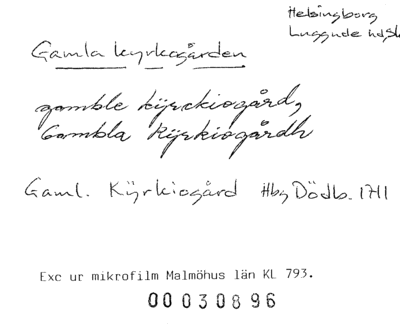 Helsingborg
Luggude hdsk
Gamla kyrkogården
gamble kÿrckiogård,
Gambla Kÿrkiogårdh
Gaml. Kÿrkiogård Hbg Dödb. 1711
Exc ur mikrofilm Malmöhus län KL 793.
00 030896